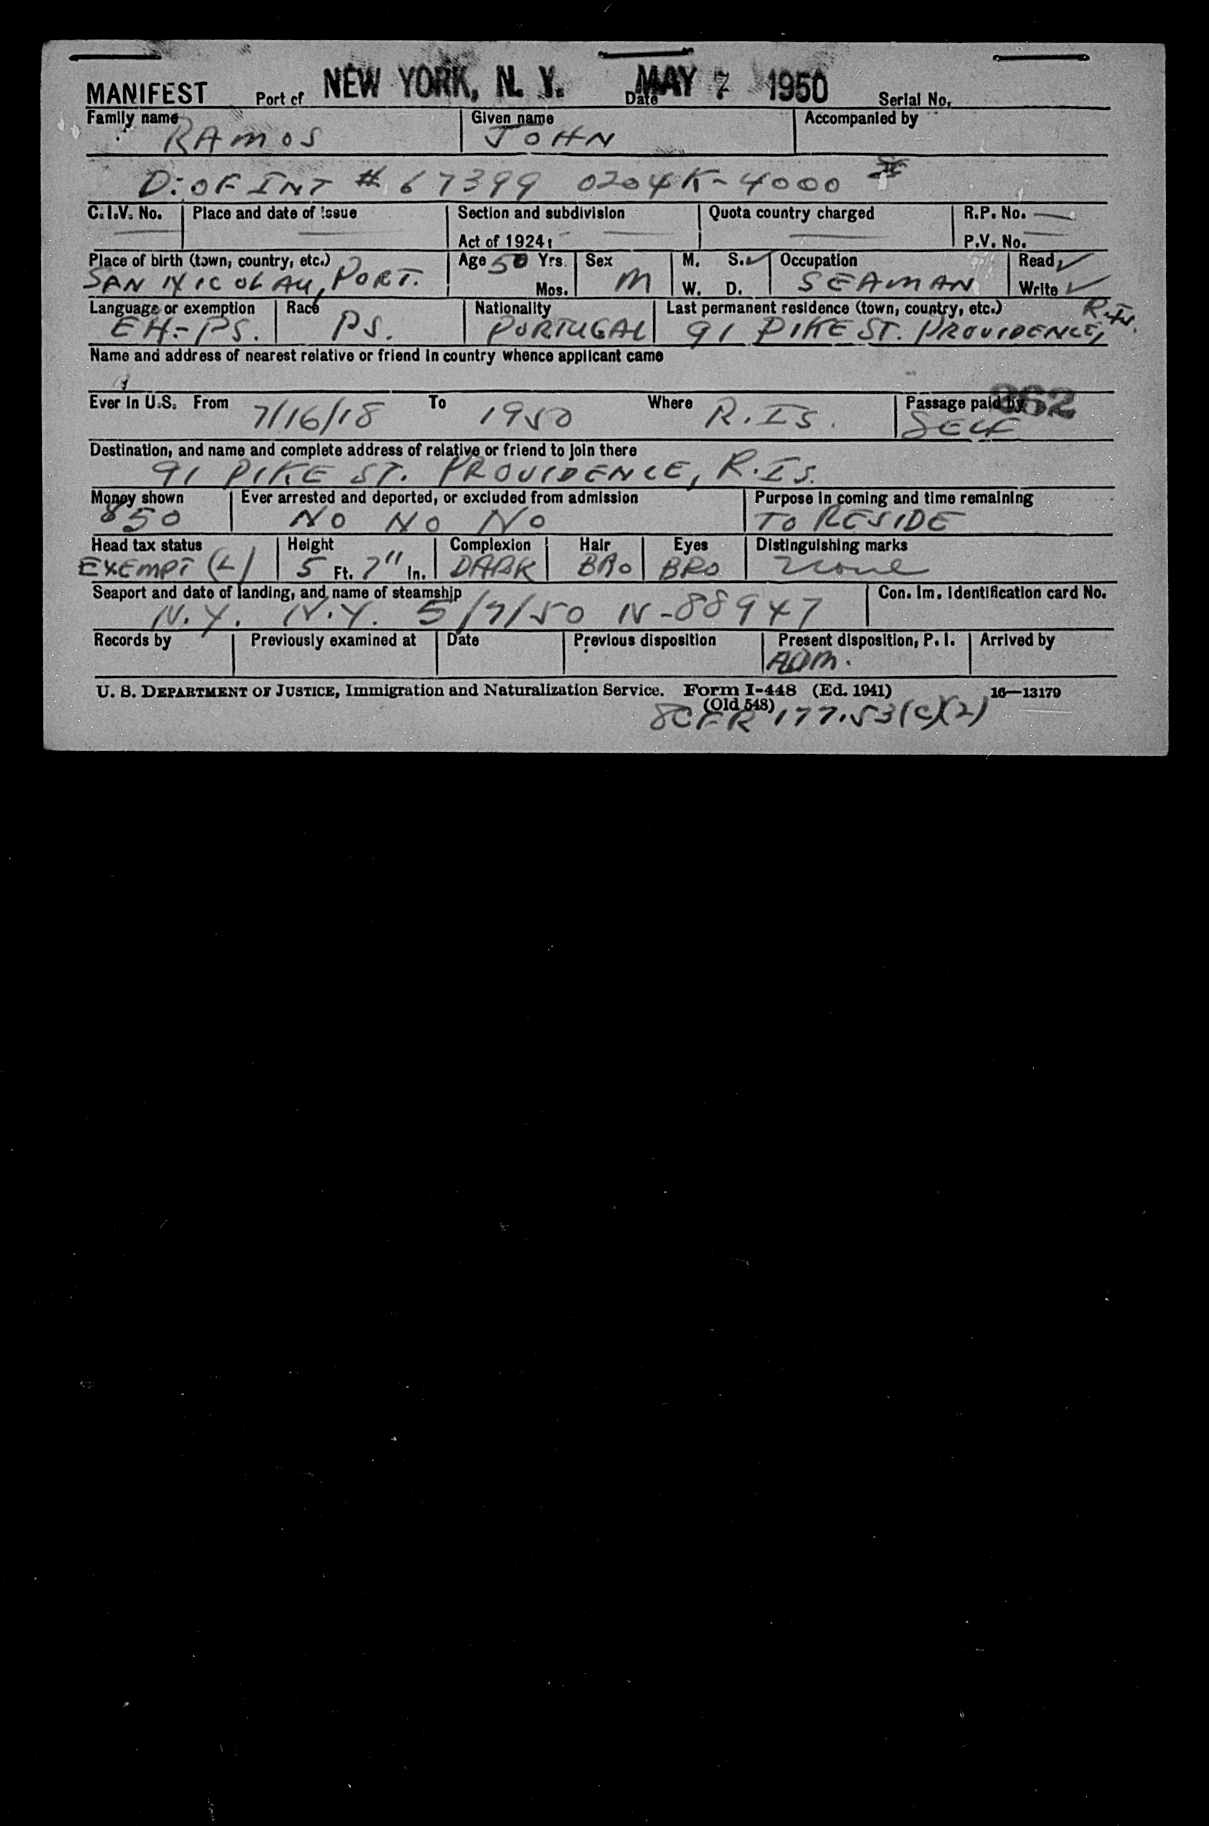 MANIFEST Port of NEW YORK, N. Y. Date MAY 7 1950 Serial No.
Family name RAMOS Given name JOHN Accompanied by
D. OF INT # 67399 0204K-4000
C.I.V. No. Place and date of issue Section and subdivision Quota country charged R.P. No.
Act of 1924: P.V. No.
Place of birth (town, country, etc.) SAN NICOLAU, PORT. Age 50 Yrs. Mos. Sex M M. S. ✓ W. D. Occupation SEAMAN Read ✓ Write ✓
Language or exemption EH-PS. Race PS. Nationality PORTUGAL Last permanent residence (town, country, etc.) 91 PIKE ST. PROVIDENCE, R.Is.
Name and address of nearest relative or friend in country whence applicant came
Ever in U.S. From 7/16/18 To 1950 Where R.Is. Passage paid by SELF 362
Destination, and name and complete address of relative or friend to join there
91 PIKE ST. PROVIDENCE, R.Is.
Money shown 850 Ever arrested and deported, or excluded from admission NO NO NO Purpose in coming and time remaining TO RESIDE
Head tax status EXEMPT (L) Height 5 Ft. 7" In. Complexion DARK Hair BRO Eyes BRO Distinguishing marks none
Seaport and date of landing, and name of steamship N.Y. N.Y. 5/7/50 N-88947 Con. Im. Identification card No.
Records by Previously examined at Date Previous disposition Present disposition, P. I. ADM. Arrived by
U. S. DEPARTMENT OF JUSTICE, Immigration and Naturalization Service. Form I-448 (Ed. 1941) 16—13179
(Old 548)
8CFR 177.53(C)(2)